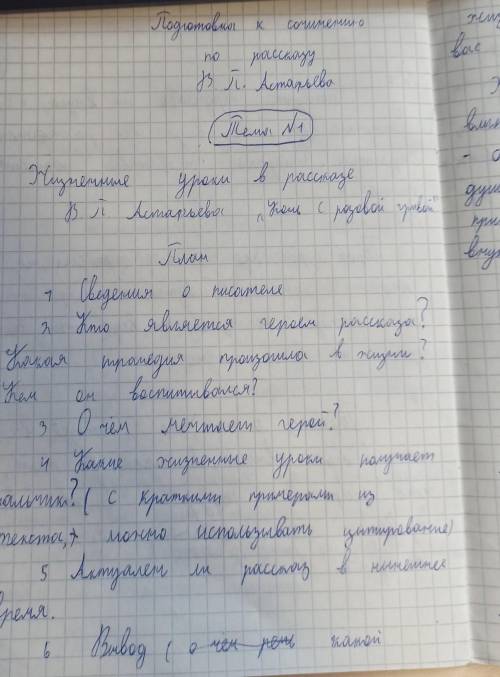 Подготовка к сочинению
по рассказу
В П. Астафьева
Тема №1
Жизненные уроки в рассказе
В П Астафьева „Конь с розовой гривой"
План
1 Сведения о писателе
2 Кто является героем рассказа?
Какая трагедия произошла в жизни?
Кем он воспитывался?
3 О чём мечтает герой?
4 Какие жизненные уроки получает
мальчик? ( с краткими примерами из
текста, можно использывать цитирование)
5 Актуален ли рассказ в нынешнее
время.
6 Вывод ( о чем речь какой
жиз
вас
влия
- о
душ
при
внут